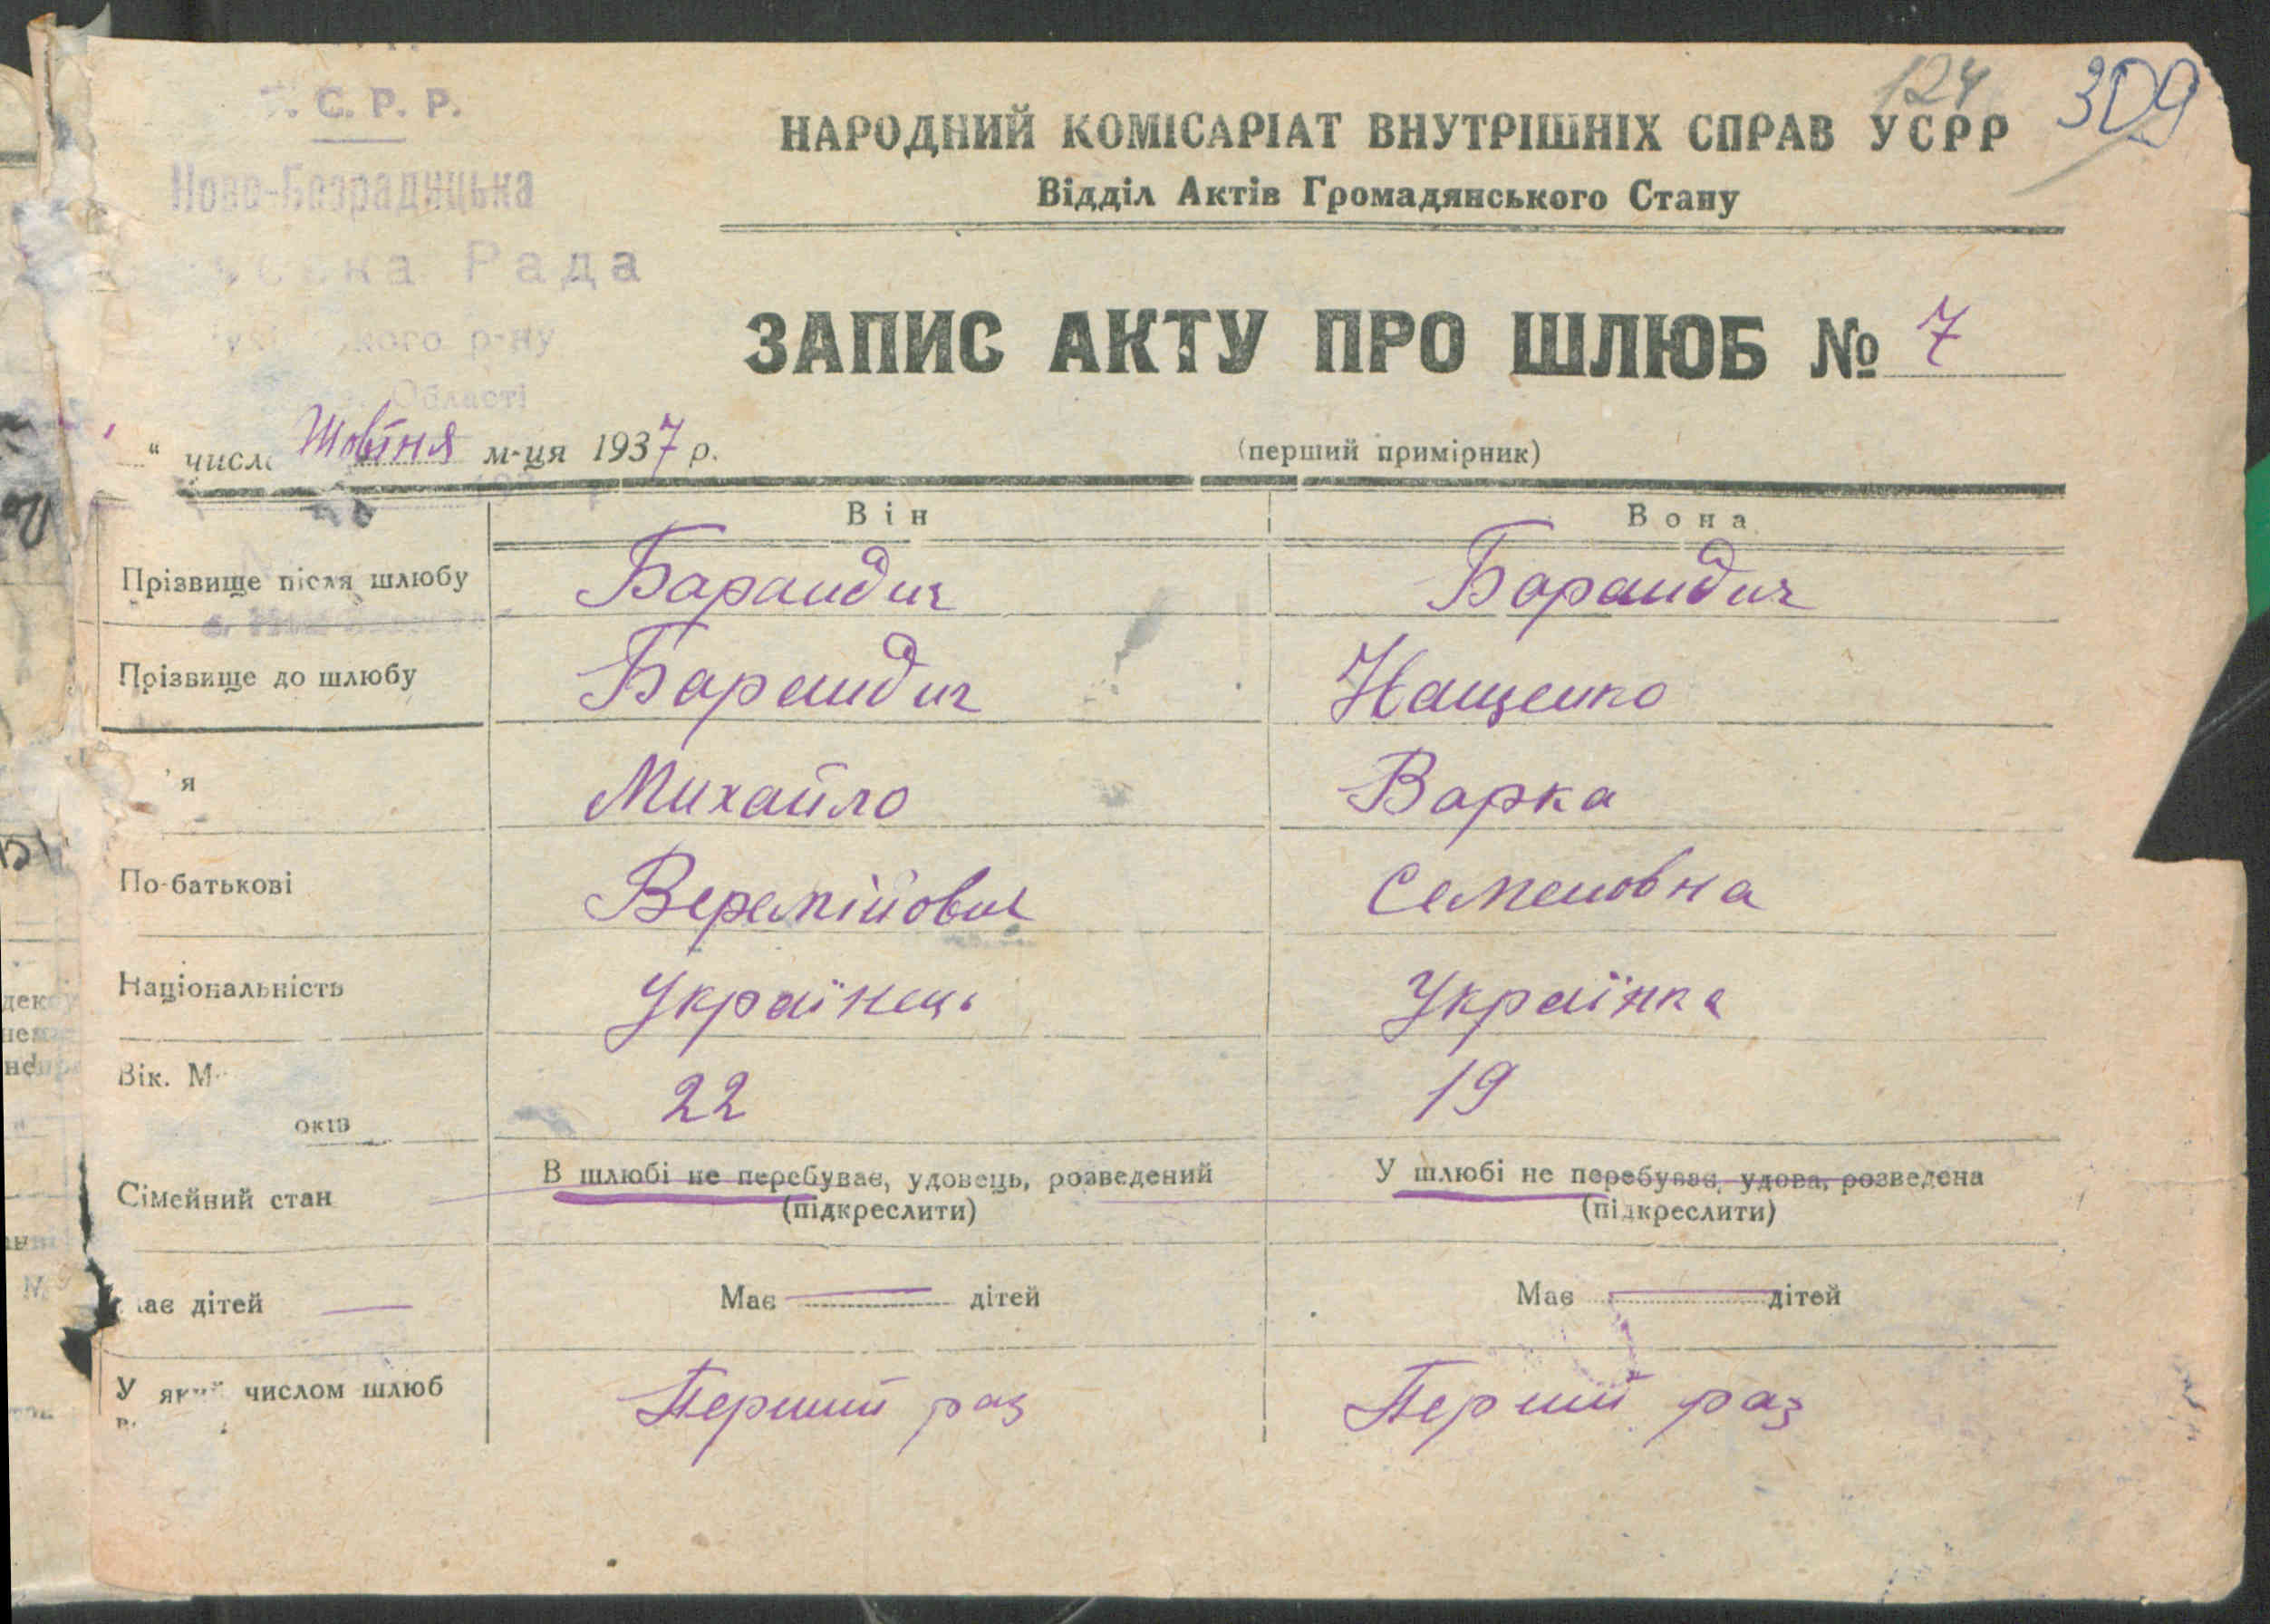 С. Р. Р.
124
309
НАРОДНИЙ КОМІСАРІАТ ВНУТРІШНІХ СПРАВ УСРР
Ново-Безрадицька
Відділ Актів Громадянського Стану
Рада
р-ну
Області
ЗАПИС АКТУ ПРО ШЛЮБ № 7
" числа Жовтня м-ця 1937 р.
(перший примірник)
Він Вона
Прізвище після шлюбу Барандич Барандич
Прізвище до шлюбу Барандич Нащенко
'я Михайло Варка
По-батькові Веремійович Семеновна
Національність Українець Українка
Вік. 22 19
оків
Сімейний стан В шлюбі не перебуває, удовець, розведений У шлюбі не перебуває, удова, розведена
(підкреслити) (підкреслити)
ає дітей — Має — дітей Має — дітей
У який числом шлюб Перший раз Перший раз